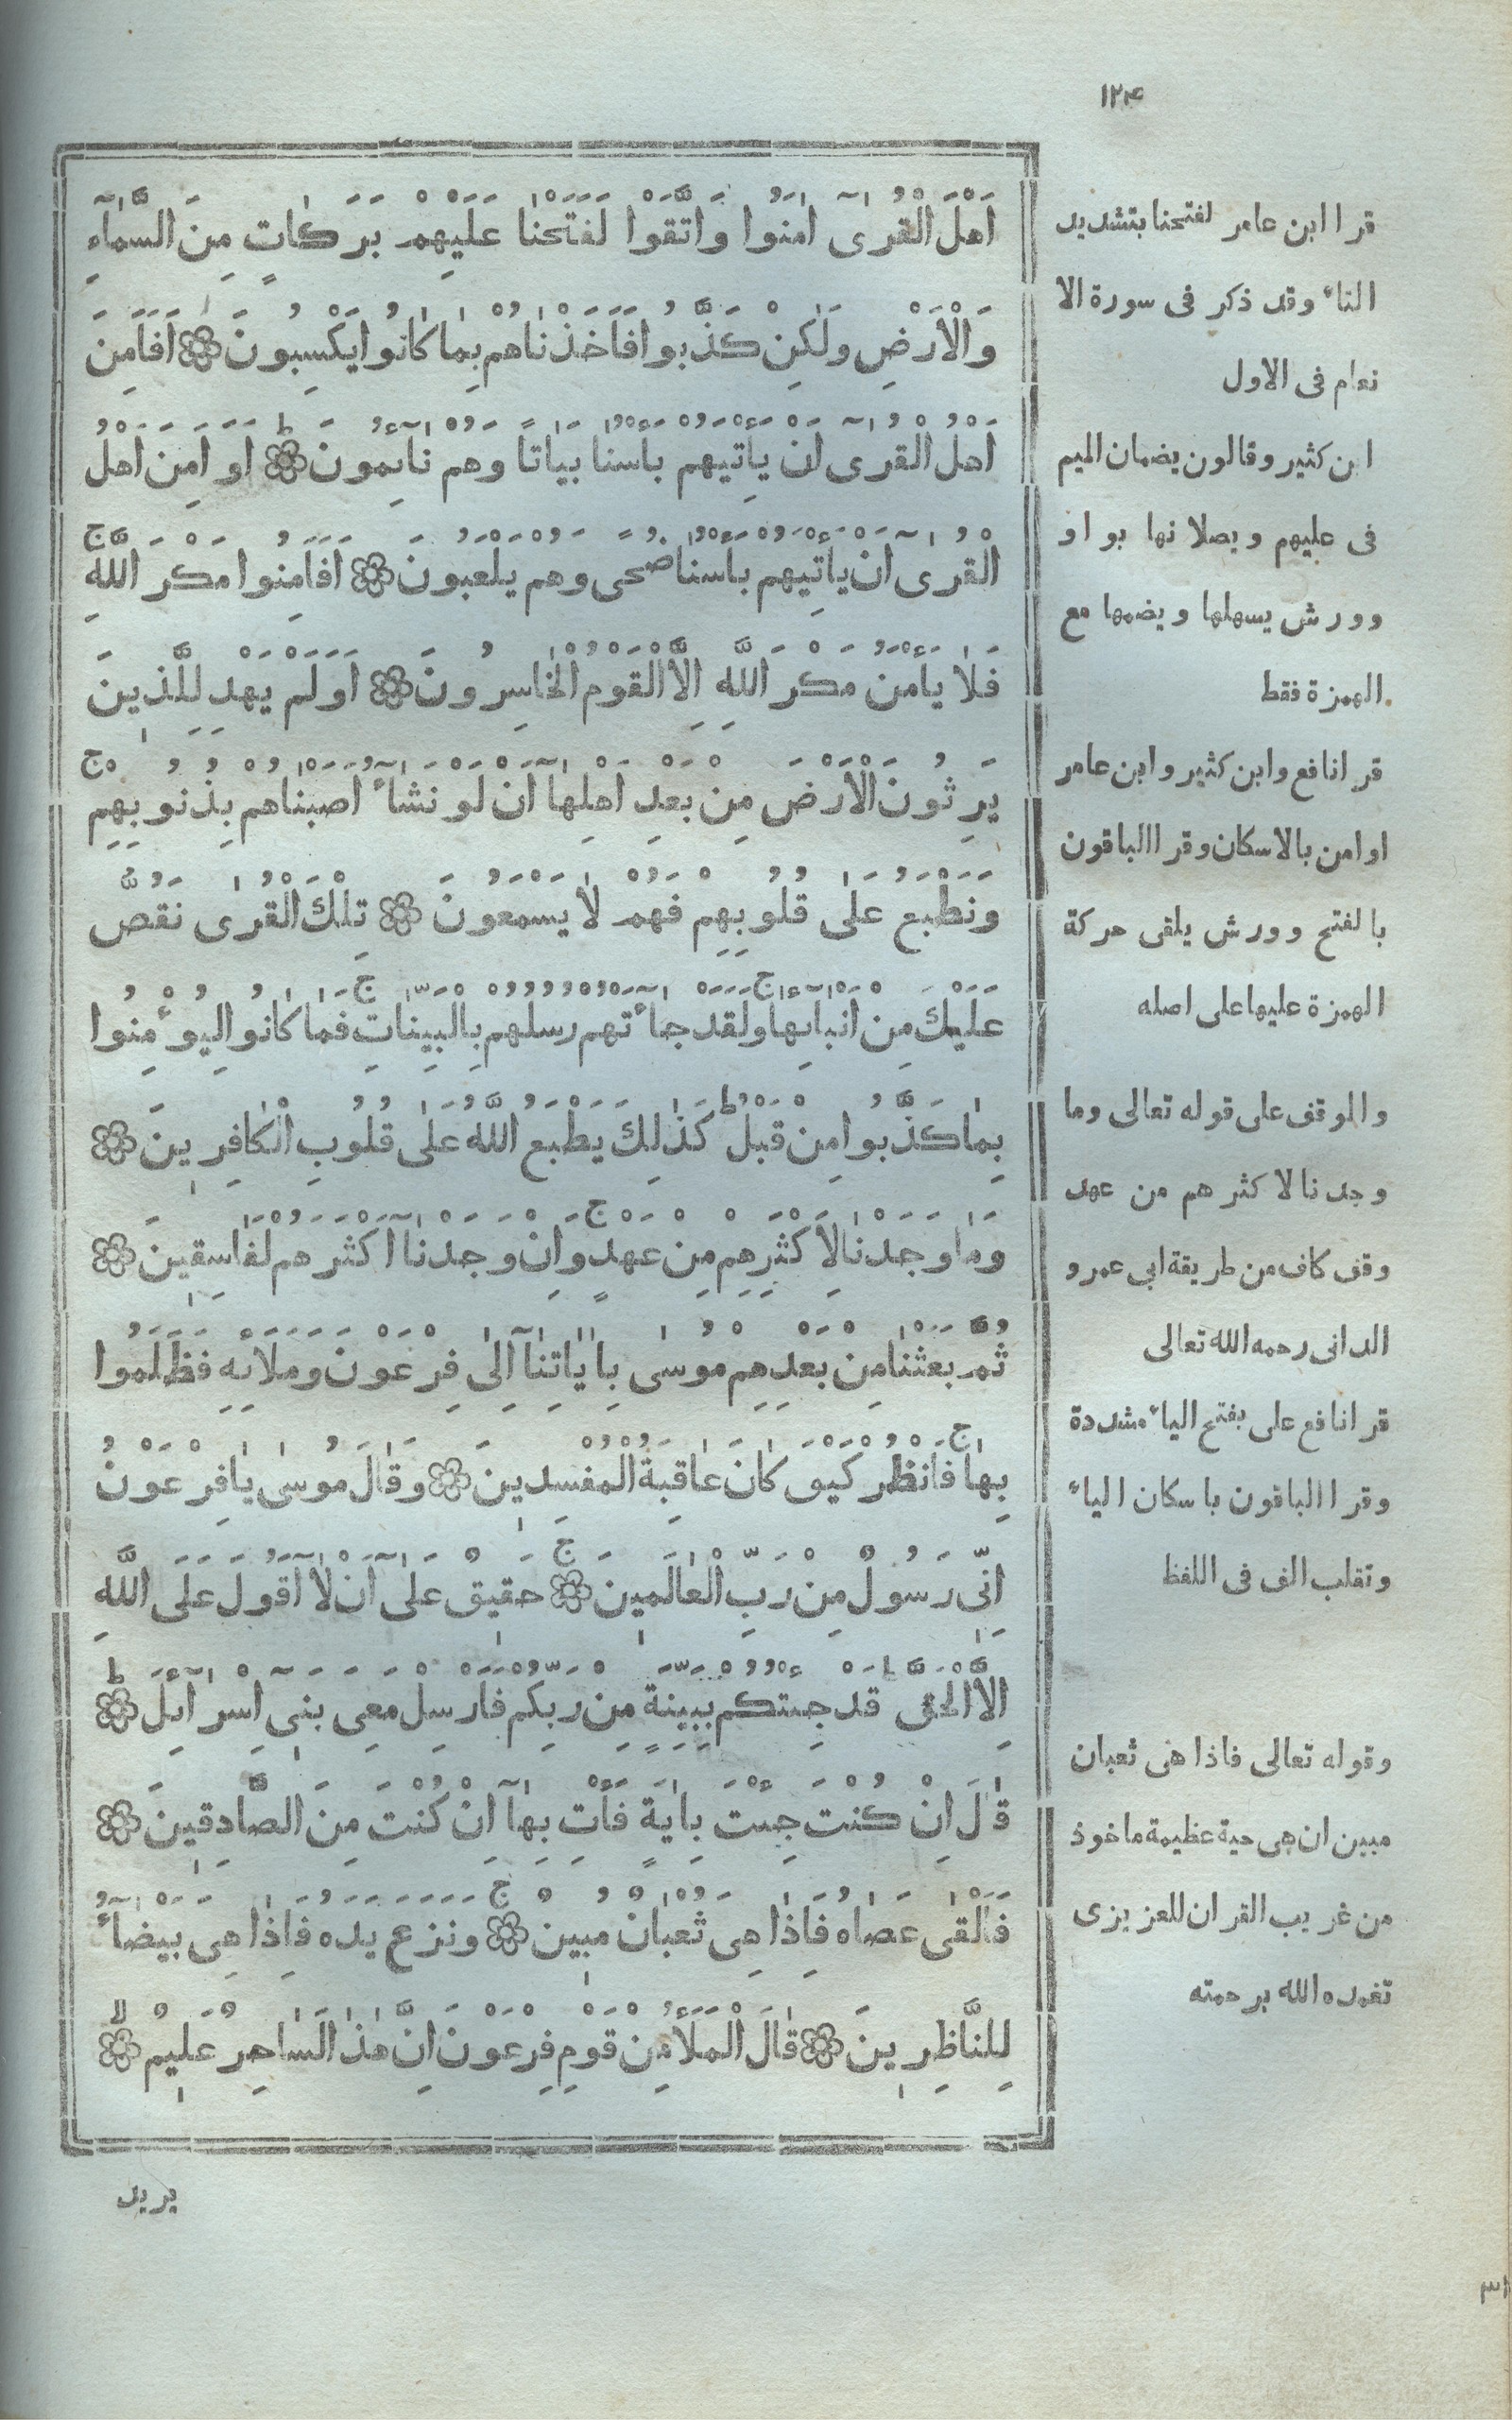 ١٢٤
اَهْلَ الْقُرٰىٓ اٰمَنُوا وَاتَّقَوْا لَفَتَحْنٰا عَلَيْهِمْ بَرَكٰاتٍ مِنَ السَّمٰآءِ
وَالْاَرْضِ وَلٰكِنْ كَذَّبُوا فَاَخَذْنٰاهُمْ بِمٰا كٰانُوا يَكْسِبُونَ ۞ اَفَاَمِنَ
اَهْلُ الْقُرٰىٓ اَنْ يَأْتِيَهُمْ بَأْسُنٰا بَيٰاتًا وَهُمْ نٰٓائِمُونَ ۞ اَوَ اَمِنَ اَهْلُ
الْقُرٰىٓ اَنْ يَأْتِيَهُمْ بَأْسُنٰا ضُحًى وَهُمْ يَلْعَبُونَ ۞ اَفَاَمِنُوا مَكْرَ اللَّهِ ج
فَلٰا يَأْمَنُ مَكْرَ اللَّهِ اِلَّا الْقَوْمُ الْخٰاسِرُونَ ۞ اَوَلَمْ يَهْدِ لِلَّذِينَ
يَرِثُونَ الْاَرْضَ مِنْ بَعْدِ اَهْلِهٰٓا اَنْ لَوْ نَشٰٓاءُ اَصَبْنٰاهُمْ بِذُنُوبِهِمْ ج
وَنَطْبَعُ عَلٰى قُلُوبِهِمْ فَهُمْ لٰا يَسْمَعُونَ ۞ تِلْكَ الْقُرٰى نَقُصُّ
عَلَيْكَ مِنْ اَنْبٰٓائِهٰا ج وَلَقَدْ جٰٓاءَتْهُمْ رُسُلُهُمْ بِالْبَيِّنٰاتِ ج فَمٰا كٰانُوا لِيُؤْمِنُوا
بِمٰا كَذَّبُوا مِنْ قَبْلُ ط كَذٰلِكَ يَطْبَعُ اللَّهُ عَلٰى قُلُوبِ الْكٰافِرِينَ ۞
وَمٰا وَجَدْنٰا لِاَكْثَرِهِمْ مِنْ عَهْدٍ ج وَاِنْ وَجَدْنٰٓا اَكْثَرَهُمْ لَفٰاسِقِينَ ۞
ثُمَّ بَعَثْنٰا مِنْ بَعْدِهِمْ مُوسٰى بِاٰيٰاتِنٰٓا اِلٰى فِرْعَوْنَ وَمَلَائِهِ فَظَلَمُوا
بِهٰا ج فَانْظُرْ كَيْفَ كٰانَ عٰاقِبَةُ الْمُفْسِدِينَ ۞ وَقٰالَ مُوسٰى يٰافِرْعَوْنُ
اِنِّى رَسُولٌ مِنْ رَبِّ الْعٰالَمِينَ ۞ ج حَقِيقٌ عَلٰٓى اَنْ لٰٓا اَقُولَ عَلَى اللَّهِ
اِلَّا الْحَقَّ ط قَدْ جِئْتُكُمْ بِبَيِّنَةٍ مِنْ رَبِّكُمْ فَاَرْسِلْ مَعِىَ بَنِىٓ اِسْرٰٓائِلَ ط ۞
قٰالَ اِنْ كُنْتَ جِئْتَ بِاٰيَةٍ فَأْتِ بِهٰٓا اِنْ كُنْتَ مِنَ الصَّادِقِينَ ۞
فَاَلْقٰى عَصٰاهُ فَاِذٰا هِىَ ثُعْبٰانٌ مُبِينٌ ۞ ج وَنَزَعَ يَدَهُ فَاِذٰا هِىَ بَيْضٰٓاءُ
لِلنَّاظِرِينَ ۞ قٰالَ الْمَلَأُ مِنْ قَوْمِ فِرْعَوْنَ اِنَّ هٰذٰا لَسٰاحِرٌ عَلِيمٌ لا ۞
قرا ابن عامر لفتحنا بتشديد
التاء وقد ذكر فى سورة الا
نعام فى الاول
ابن كثير وقالون يضمان الميم
فى عليهم ويصلانها بواو
وورش يسهلها ويضمها مع
الهمزة فقط
قرا نافع وابن كثير وابن عامر
او امن بالاسكان وقرا الباقون
بالفتح وورش يلقى حركة
الهمزة عليها على اصله
والوقف على قوله تعالى وما
وجدنا لاكثرهم من عهد
وقف كاف من طريقة ابى عمرو
الدانى رحمه الله تعالى
قرا نافع على بفتح الياء مشددة
وقرا الباقون باسكان الياء
وتقلب الف فى اللفظ
وقوله تعالى فاذا هى ثعبان
مبين ان هى حية عظيمة ماخوذ
من غريب القران للعزيزى
تغمده الله برحمته
يريد
٣١